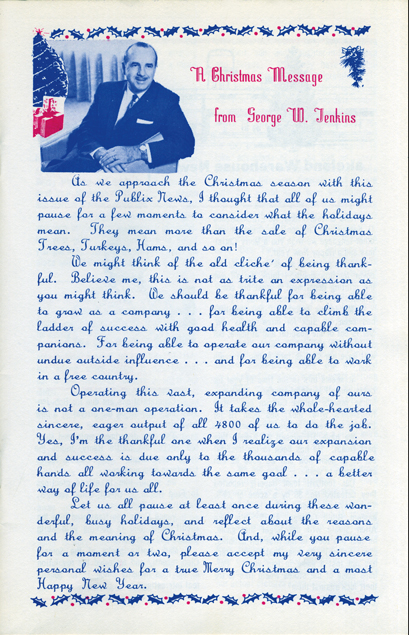 A Christmas Message
from George W. Jenkins
As we approach the Christmas season with this
issue of the Publix News, I thought that all of us might
pause for a few moments to consider what the holidays
mean. They mean more than the sale of Christmas
Trees, Turkeys, Hams, and so on!
We might think of the old cliche' of being thank-
ful. Believe me, this is not as trite an expression as
you might think. We should be thankful for being able
to grow as a company . . . for being able to climb the
ladder of success with good health and capable com-
panions. For being able to operate our company without
undue outside influence . . . and for being able to work
in a free country.
Operating this vast, expanding company of ours
is not a one-man operation. It takes the whole-hearted
sincere, eager output of all 4800 of us to do the job.
Yes, I'm the thankful one when I realize our expansion
and success is due only to the thousands of capable
hands all working towards the same goal . . . a better
way of life for us all.
Let us all pause at least once during these won-
derful, busy holidays, and reflect about the reasons
and the meaning of Christmas. And, while you pause
for a moment or two, please accept my very sincere
personal wishes for a true Merry Christmas and a most
Happy New Year.